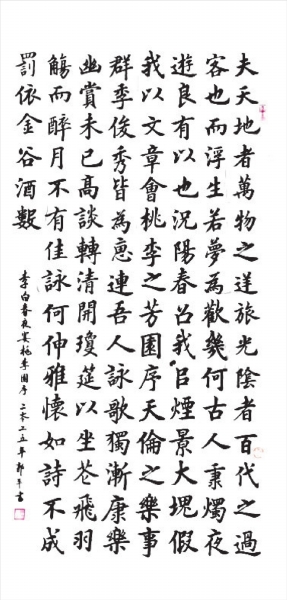 夫天地者萬物之逆旅光陰者百代之過
客也而浮生若夢為歡幾何古人秉燭夜
遊良有以也況陽春召我㠯煙景大塊假
我以文章會桃李之芳園序天倫之樂事
群季俊秀皆為惠連吾人詠歌獨漸康樂
幽賞未已高談轉清開瓊筵以坐花飛羽
觴而醉月不有佳詠何伸雅懷如詩不成
罰依金谷酒數
李白春夜宴桃李園序 二零二五年郭平書